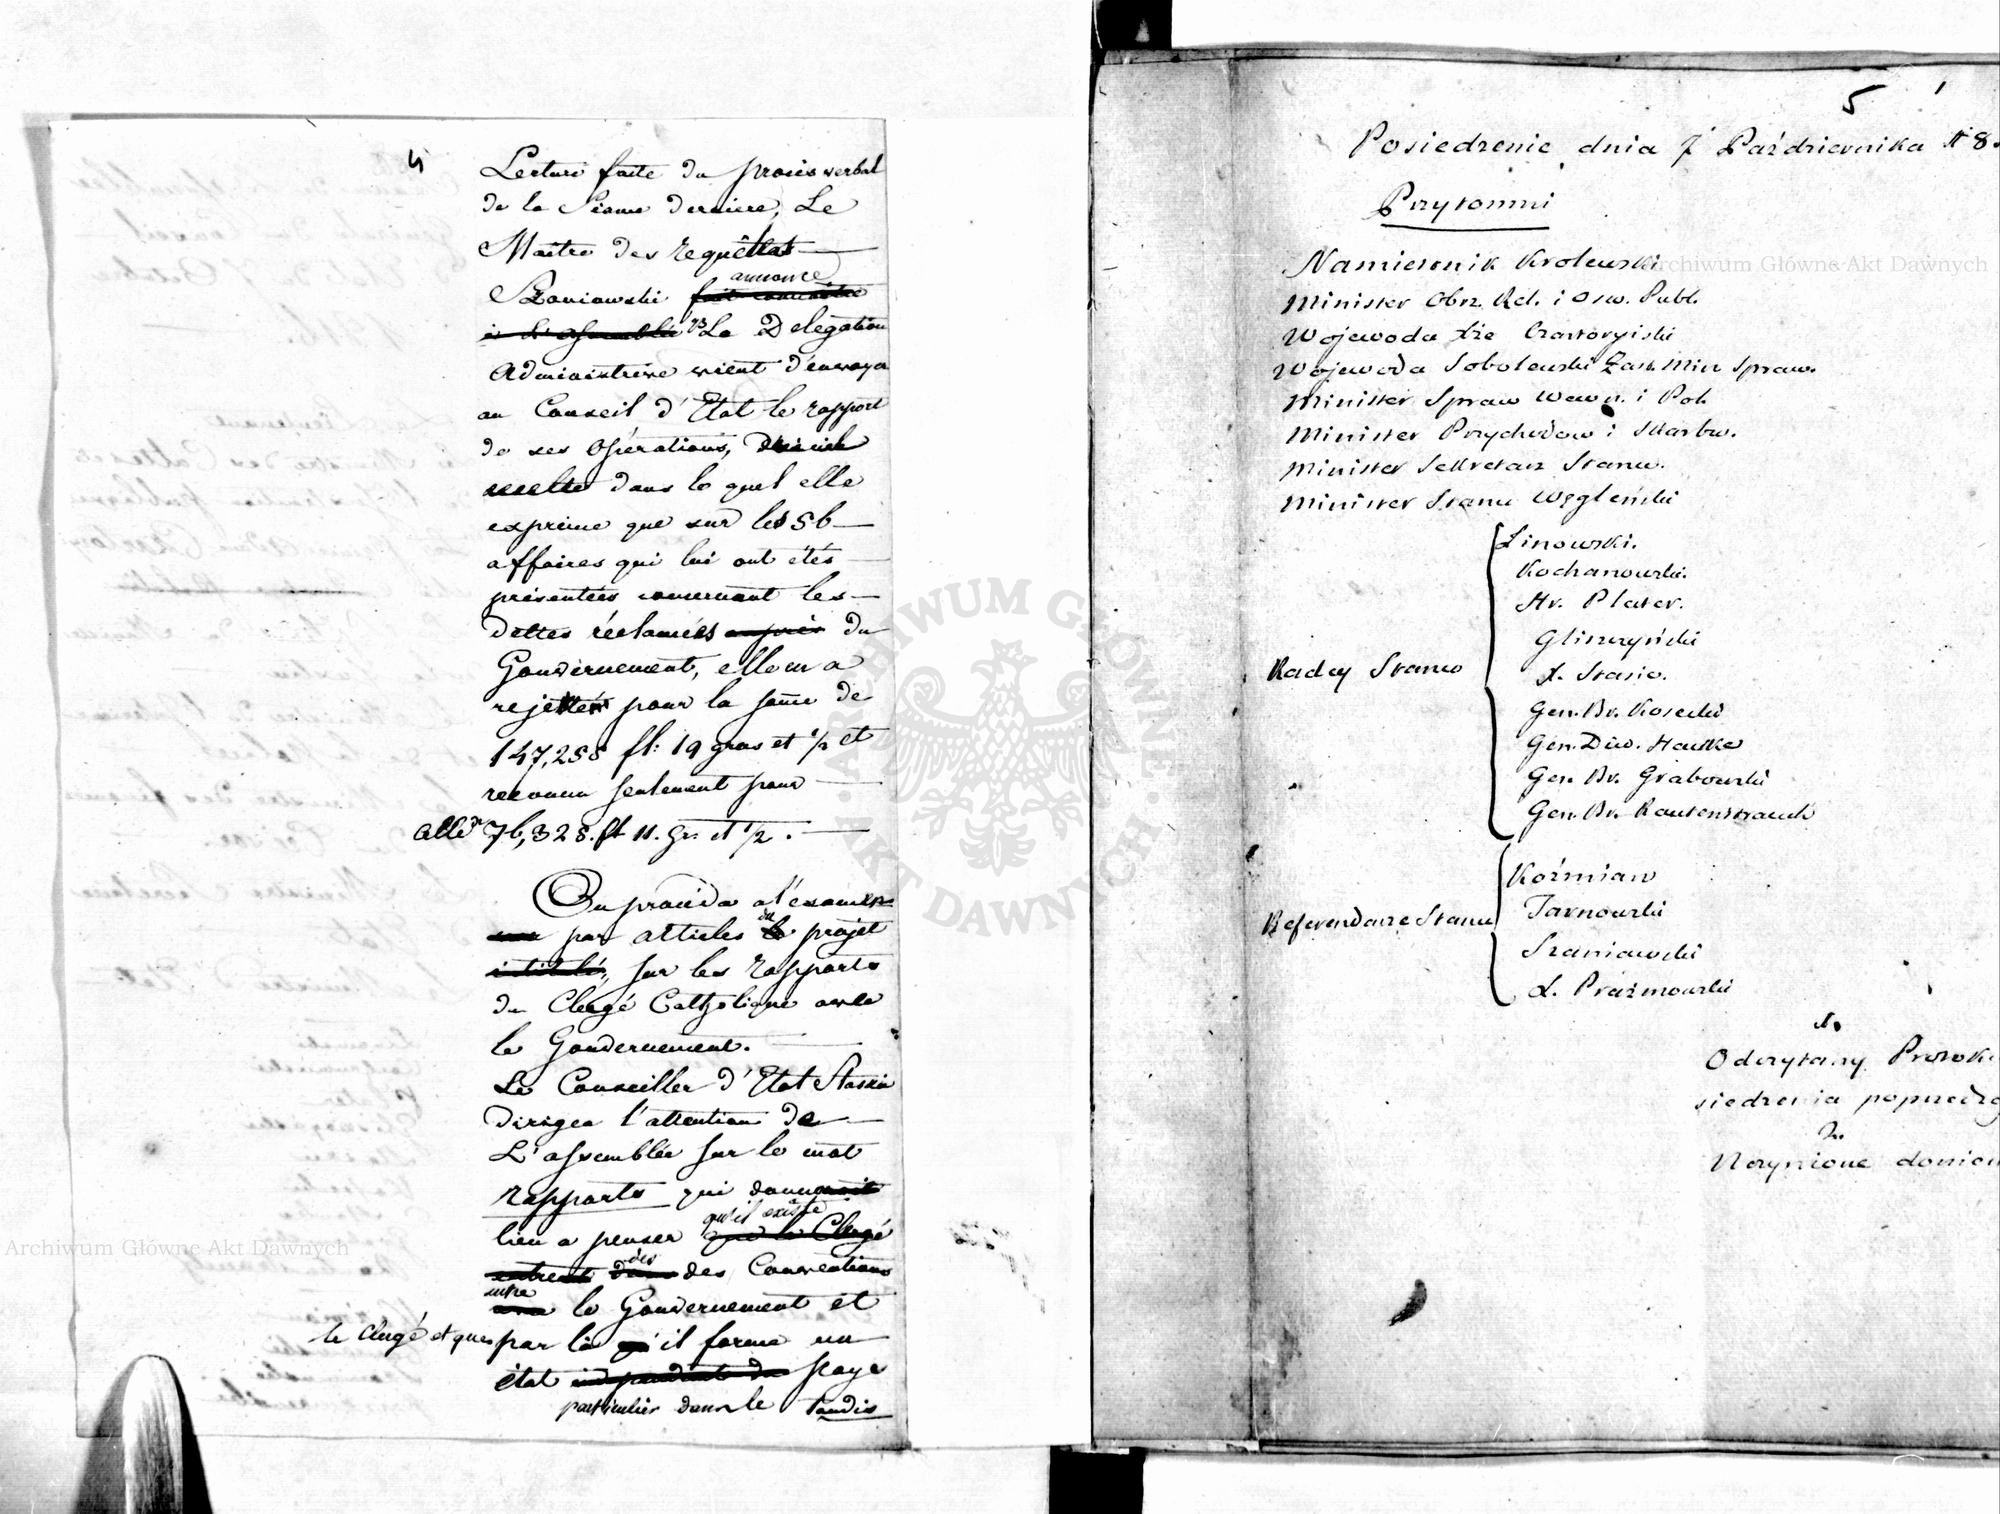 4
Lecture faite du procès verbal
de la Séance derniere, Le
Maitre des requêttes
annonce
Szaniawski fait connaitre
à l'assemblé La Délégation
Administrive vient d'envoye
au Conseil d'Etat le rapport
de ses Opérations,
dans le quel elle
exprime que sur les 56
affaires qui lui ont étés
présentées concernant les
dettes réclamées auprès du
Gouvernement, elle en a
rejetté pour la some de
147,288 fl: 19 gros et ½ et
reconnu seulement pour
celle 76,328. fl 11. gr. et ½.
On procéda a l'examen
par articles du projet
intitulé, sur les rapports
du Clergé Catholique avec
le Gouvernement.
Le Conseiller d'Etat Staszic
dirigea l'attention de
L'assemblée sur le mot
rapports qui donnoit
qu'il existe
lieu a penser que le Clergé
des
des Conventions
entre
avec le Gouvernement et
le Clergé et que par là qu'il forme un
état independent du pays
particulier dans le tandis
5
Posiedzenie dnia 7 Października N 8.
Przytomni
Namiesnik Krolewski
Minister Obrz. Rel. i Osw. Publ.
Wojewoda Xże Czartoryiski
Wojewoda Sobolewski Zast. Min Spraw.
Minister Spraw Wewn. i Pol.
Minister Przychodow i Skarbu.
Minister Sekretarz Stanu.
Minister Stanu Węgleński
Radcy Stanu
Linowski.
Kochanowski.
Hr. Plater.
Gliszczyński
X. Staszic.
Gen. Br. Kosecki
Gen. Diw. Hauke
Gen. Br. Grabowski
Gen. Br. Rautenstrauch
Referendarze Stanu
Koźmian
Tarnowski
Szaniawski
X. Prażmowski
1.
Odczytany Protok
siedzenia poprzedza
2.
Uczynione donies
Archiwum Główne Akt Dawnych
Archiwum Główne Akt Dawnych
ARCHIWUM GŁÓWNE AKT DAWNYCH